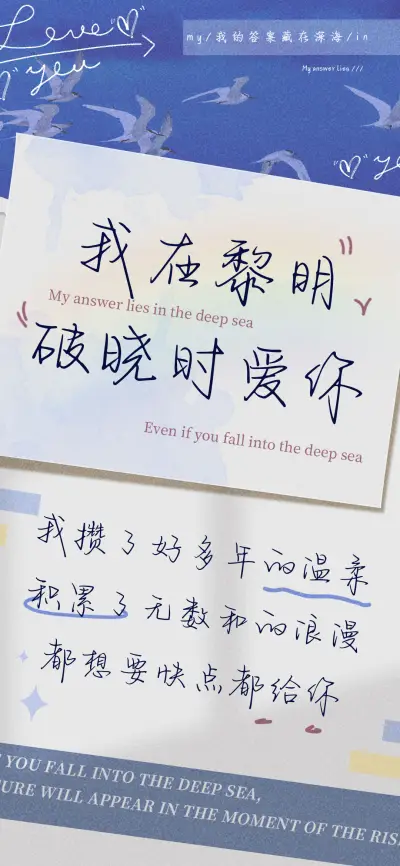 Love
you
my/我的答案藏在深海/in
My answer Lies ///
我在黎明
My answer lies in the deep sea
破晓时爱你
Even if you fall into the deep sea
我攒了好多年的温柔
积累了无数和的浪漫
都想要快点都给你
YOU FALL INTO THE DEEP SEA,
TURE WILL APPEAR IN THE MOMENT OF THE RIS